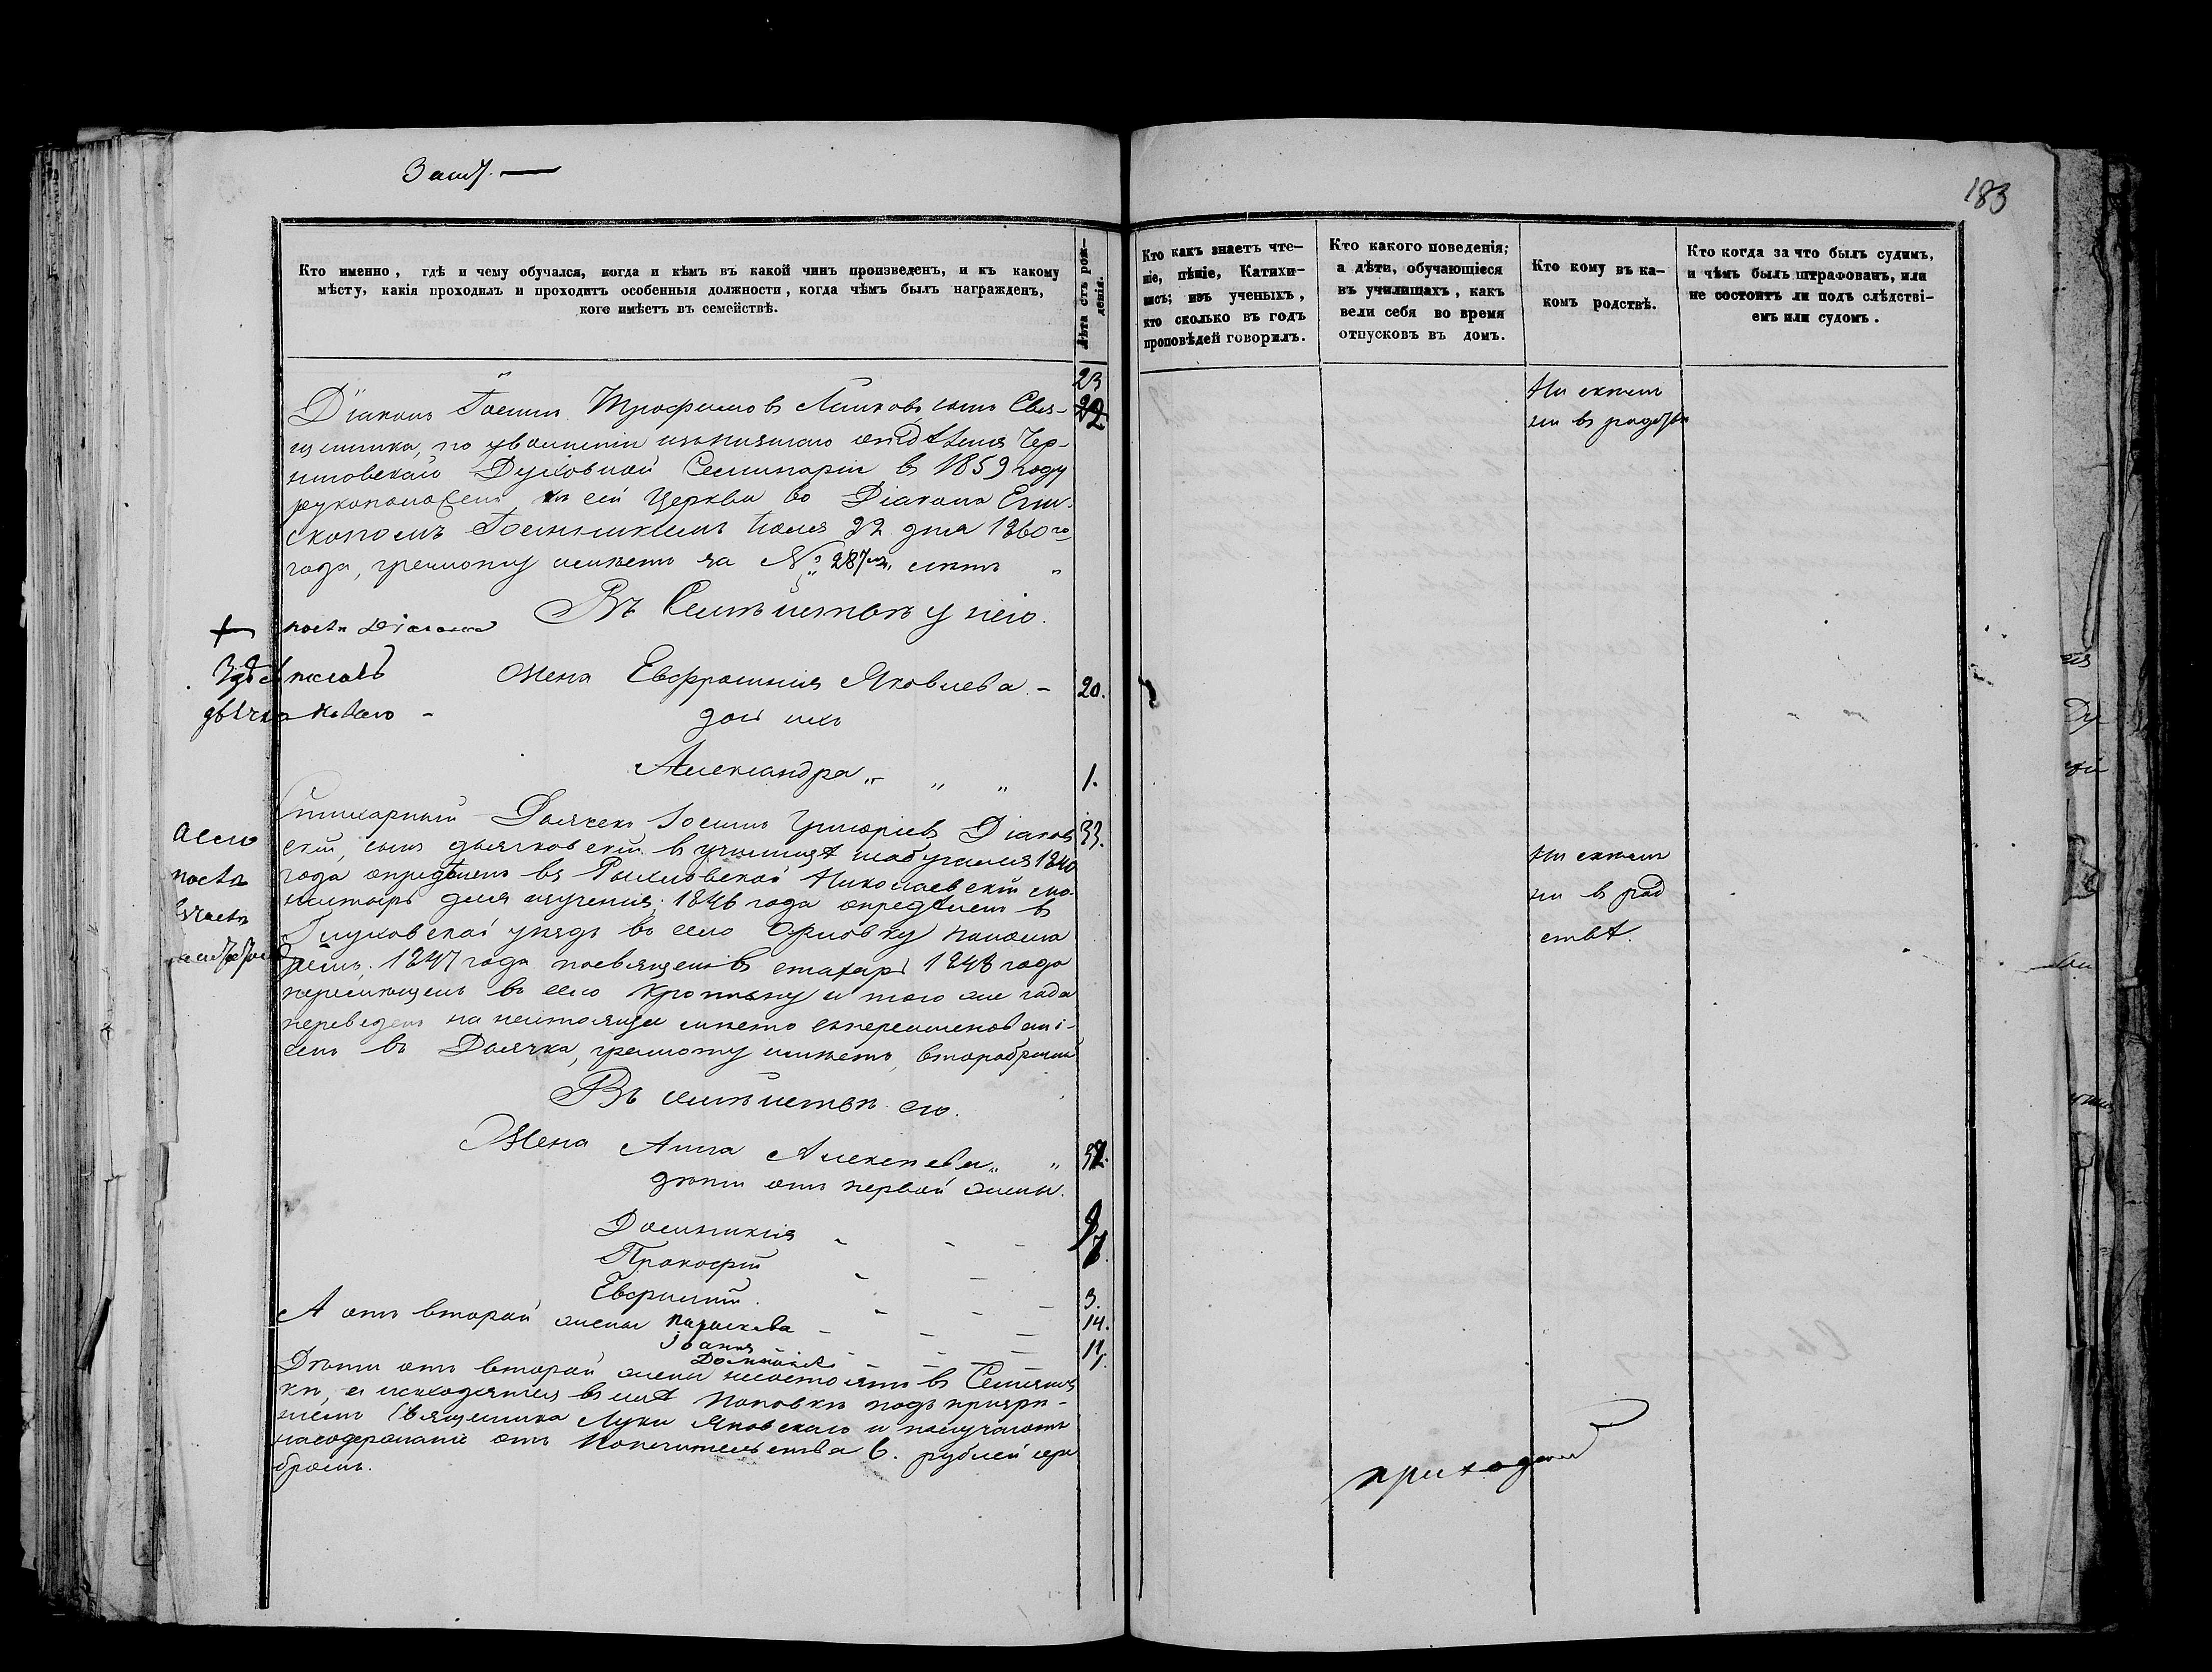 183
Кто именно, гдѣ и чему обучался, когда и кѣмъ въ какой чинъ произведенъ, и къ какому
мѣсту, какія проходилъ и проходитъ особенныя должности, когда чѣмъ былъ награжденъ,
кого имѣетъ въ семействѣ.
Лѣта отъ рож-
денія.
Кто какъ знаетъ чте-
ніе, пѣніе, Катихи-
зисъ; изъ ученыхъ,
кто сколько въ годъ
проповѣдей говорилъ.
Кто какого поведенія;
а дѣти, обучающіеся
въ училищахъ, какъ
вели себя во время
отпусковъ въ домъ.
Кто кому въ ка-
комъ родствѣ.
Кто когда за что былъ судимъ,
и чѣмъ былъ штрафованъ, или
не состоитъ ли подъ слѣдстві-
емъ или судомъ.
23
Діаконъ Трофимовъ сынъ Свя- 22
щенника, по уволненіи отдѣленія Чер-
ниговской Духовной Семинаріи въ 1859 году
рукоположенъ къ сей Церкви во Діакона Епи-
скопомъ 22 дня 1860го
года, грамоту имѣетъ за № 287мъ
Въ Семействѣ у него.
Жена Евфросинія Яковлева 20.
дочь ихъ
Александра 1.
Стихарный Дьячекъ Іосифъ Григоріевъ Діаков 33.
скій, сынъ дьячковскій въ училищѣ обучался 1840
года опредѣленъ въ Рыхловской Николаевскій мо-
настырь для изученія; 1846 года опредѣленъ въ
Глуховской уѣздъ въ село понома
ремъ. 1847 года посвященъ въ стихарь 1848 года
перемѣщенъ въ село и того же года
переведенъ на настоящее мѣсто съ переименовані-
емъ въ Дьячка, грамоту имѣетъ, второбрачный
Въ семействѣ его.
Жена Анна Алексѣева
дѣти отъ первой жены.
Домникія
Прокофій
Евфимій 3.
А отъ второй жены Параскева 14.
Дѣти отъ второй жены несостоятъ въ
кѣ, а находятся въ селѣ Поповкѣ подъ призрѣ-
ніемъ Священника Луки Яновскаго и получаютъ
насодержаніе отъ Попечительства 6. рублей сере
бромъ.
Ни съ кемъ
ни въ родств
Ни съ кемъ
ни въ род
ствѣ.